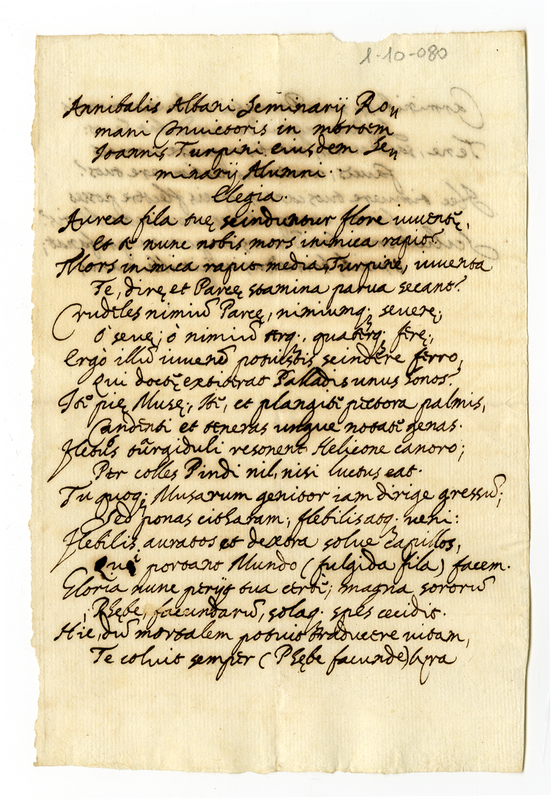 1-10-080
Annibalis Albani Seminarij Ro„
mani Convictoris in mortem
Joannis Turpini eiusdem Se„
minarij Alumni.
Elegia.
Aurea fila tuę scinduntur flore iuventę,
Et tē nunc nobis mors inimica rapit?
Mors inimica rapit media, Turpine, iuventa
Te, dirę et Parcę stamina parva secant?
Crudeles nimiū Parcę, nimiumq; severę;
O sevę; ò nimiū terq., quaterq; ferę;
Ergo illū iuvenē potuistis scindere ferro,
Qui doctę extiterat Palladis unus honos?
Itē pię Musę; Itē, et plangitē pectora palmis,
Candenti et teneras ungue notatē genas.
Fletuō turgiduli resonent Helicone canoro;
Per colles Pindi nil, nisi luctus eat.
Tu quoq; Musarum genitor iam dirige gressū;
Sed ponas citharam; flebilis atq. veni:
Flebilis auratos et dextra solve capillos,
Qui portant Mundo (fulgida fila) facem.
Gloria nunc perijt tua certē; magna sororū
Phębe, facundarū, solaq. spes cecidit.
Hic, dū mortalem potuit traducere vitam,
Te coluit semper (Phębe facunde) lyra